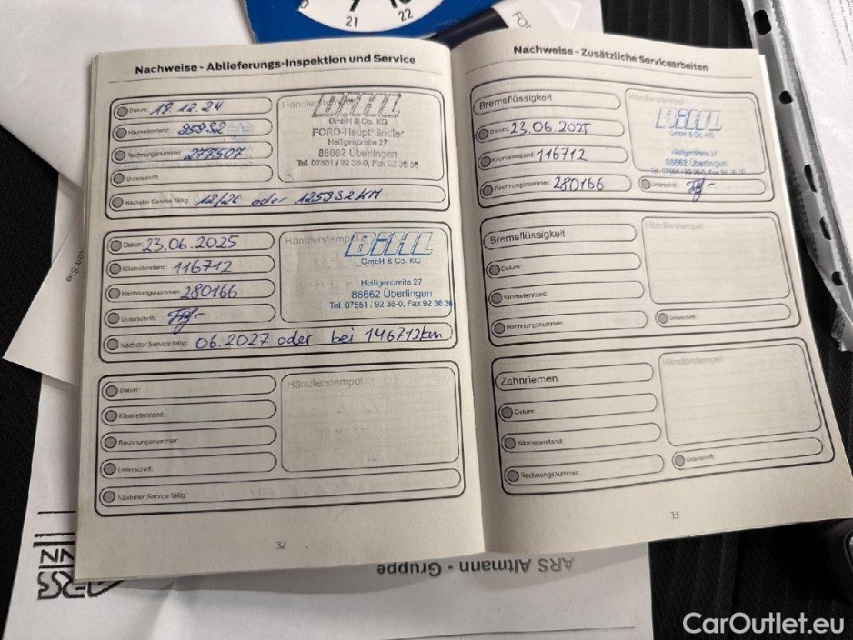 21
22
Nachweise - Ablieferungs-Inspektion und Service
Datum: 19.12.24
Händlerstempel
DAHL
GmbH & Co. KG
FORD-Haupthändler
Heiligenbreite 27
88662 Überlingen
Tel. 07551 / 92 36-0, Fax 92 36 36
Kilometerstand: 95932
Rechnungsnummer: 277507
Unterschrift:
Nächster Service fällig: 12/26 oder 125932 KM
Datum: 23.06.2025
Händlerstempel
DAHL
GmbH & Co. KG
Heiligenbreite 27
88662 Überlingen
Tel. 07551 / 92 36-0, Fax 92 36 36
Kilometerstand: 116712
Rechnungsnummer: 280166
Unterschrift:
Nächster Service fällig: 06.2027 oder bei 146712km
Datum:
Händlerstempel
Kilometerstand:
Rechnungsnummer:
Unterschrift:
Nächster Service fällig:
32
Nachweise - Zusätzliche Servicearbeiten
Bremsflüssigkeit
Händlerstempel
GmbH & Co. KG
Heiligenbreite 27
88662 Überlingen
Tel. 07551 / 92 36-0, Fax 92 36 36
Datum: 23.06.2025
Kilometerstand: 116712
Rechnungsnummer: 280166
Unterschrift:
Bremsflüssigkeit
Händlerstempel
Datum:
Kilometerstand:
Rechnungsnummer:
Unterschrift:
Zahnriemen
Händlerstempel
Datum:
Kilometerstand:
Rechnungsnummer:
Unterschrift:
33
ARS Altmann - Gruppe
CarOutlet.eu